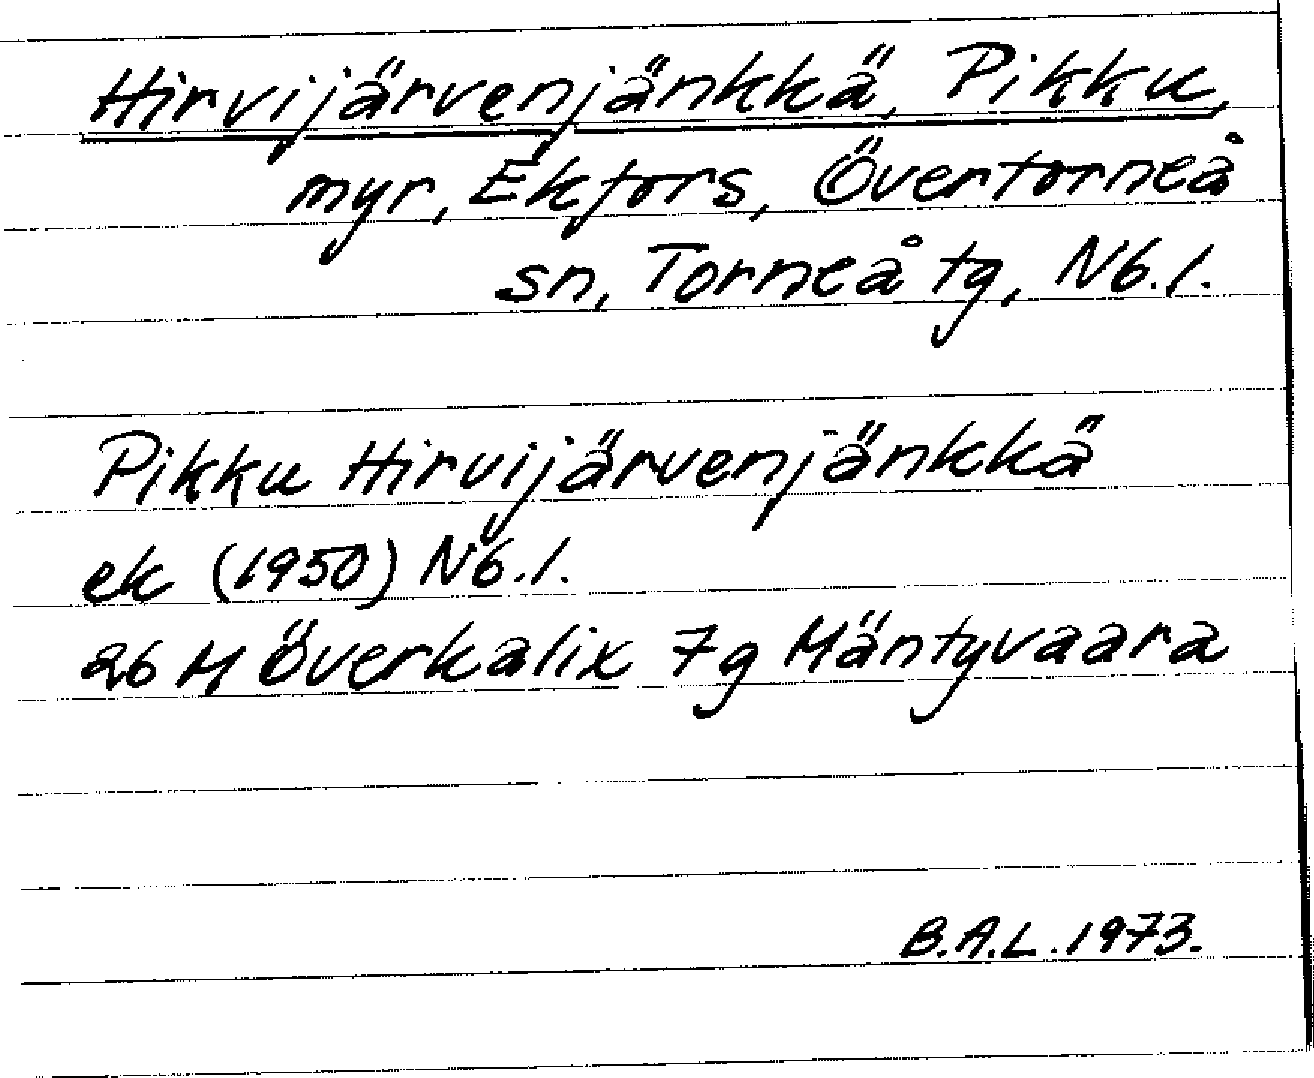 Hirvijärvenjänkkä, Pikku,
myr, Ekfors, Övertorneå
sn, Torneå tg, Nb. l.
Pikku Hirvijärvenjänkkä
ek (1950) Nb. l.
26 M Överkalix 7g Mäntyvaara
B.A.L. 1973.